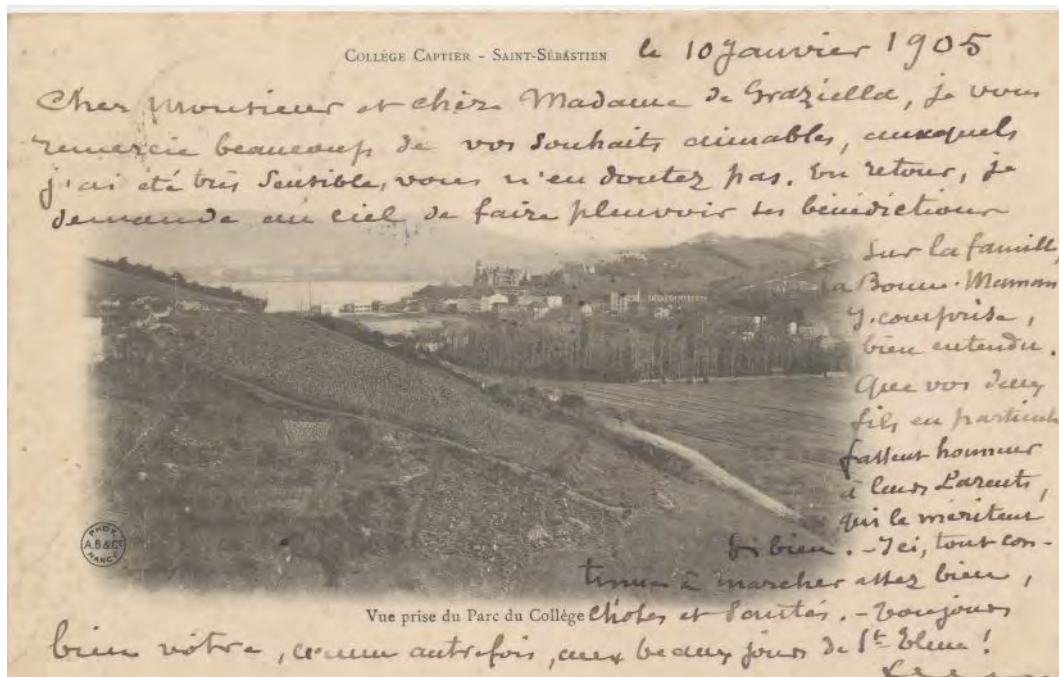 COLLÈGE CAPTIER - SAINT-SÉBASTIEN
le 10 Janvier 1905
Cher Monsieur et chère Madame de Graziella, je vous
remercie beaucoup de vos souhaits aimables, auxquels
j'ai été très sensible, vous n'en doutez pas. En retour, je
demande au ciel de faire pleuvoir ses bénédictions
sur la famille,
la Bonne-Maman
y comprise,
bien entendu.
Que vos deux
fils en particul
fassent honneur
à leurs Parents,
qui le méritent
si bien. - Ici, tout con-
tinue à marcher assez bien,
Vue prise du Parc du Collège
choses et santés. - Toujours
bien vôtre, comme autrefois, aux beaux jours de St Elme !
PHOT.
A.B & Cie
NANCY